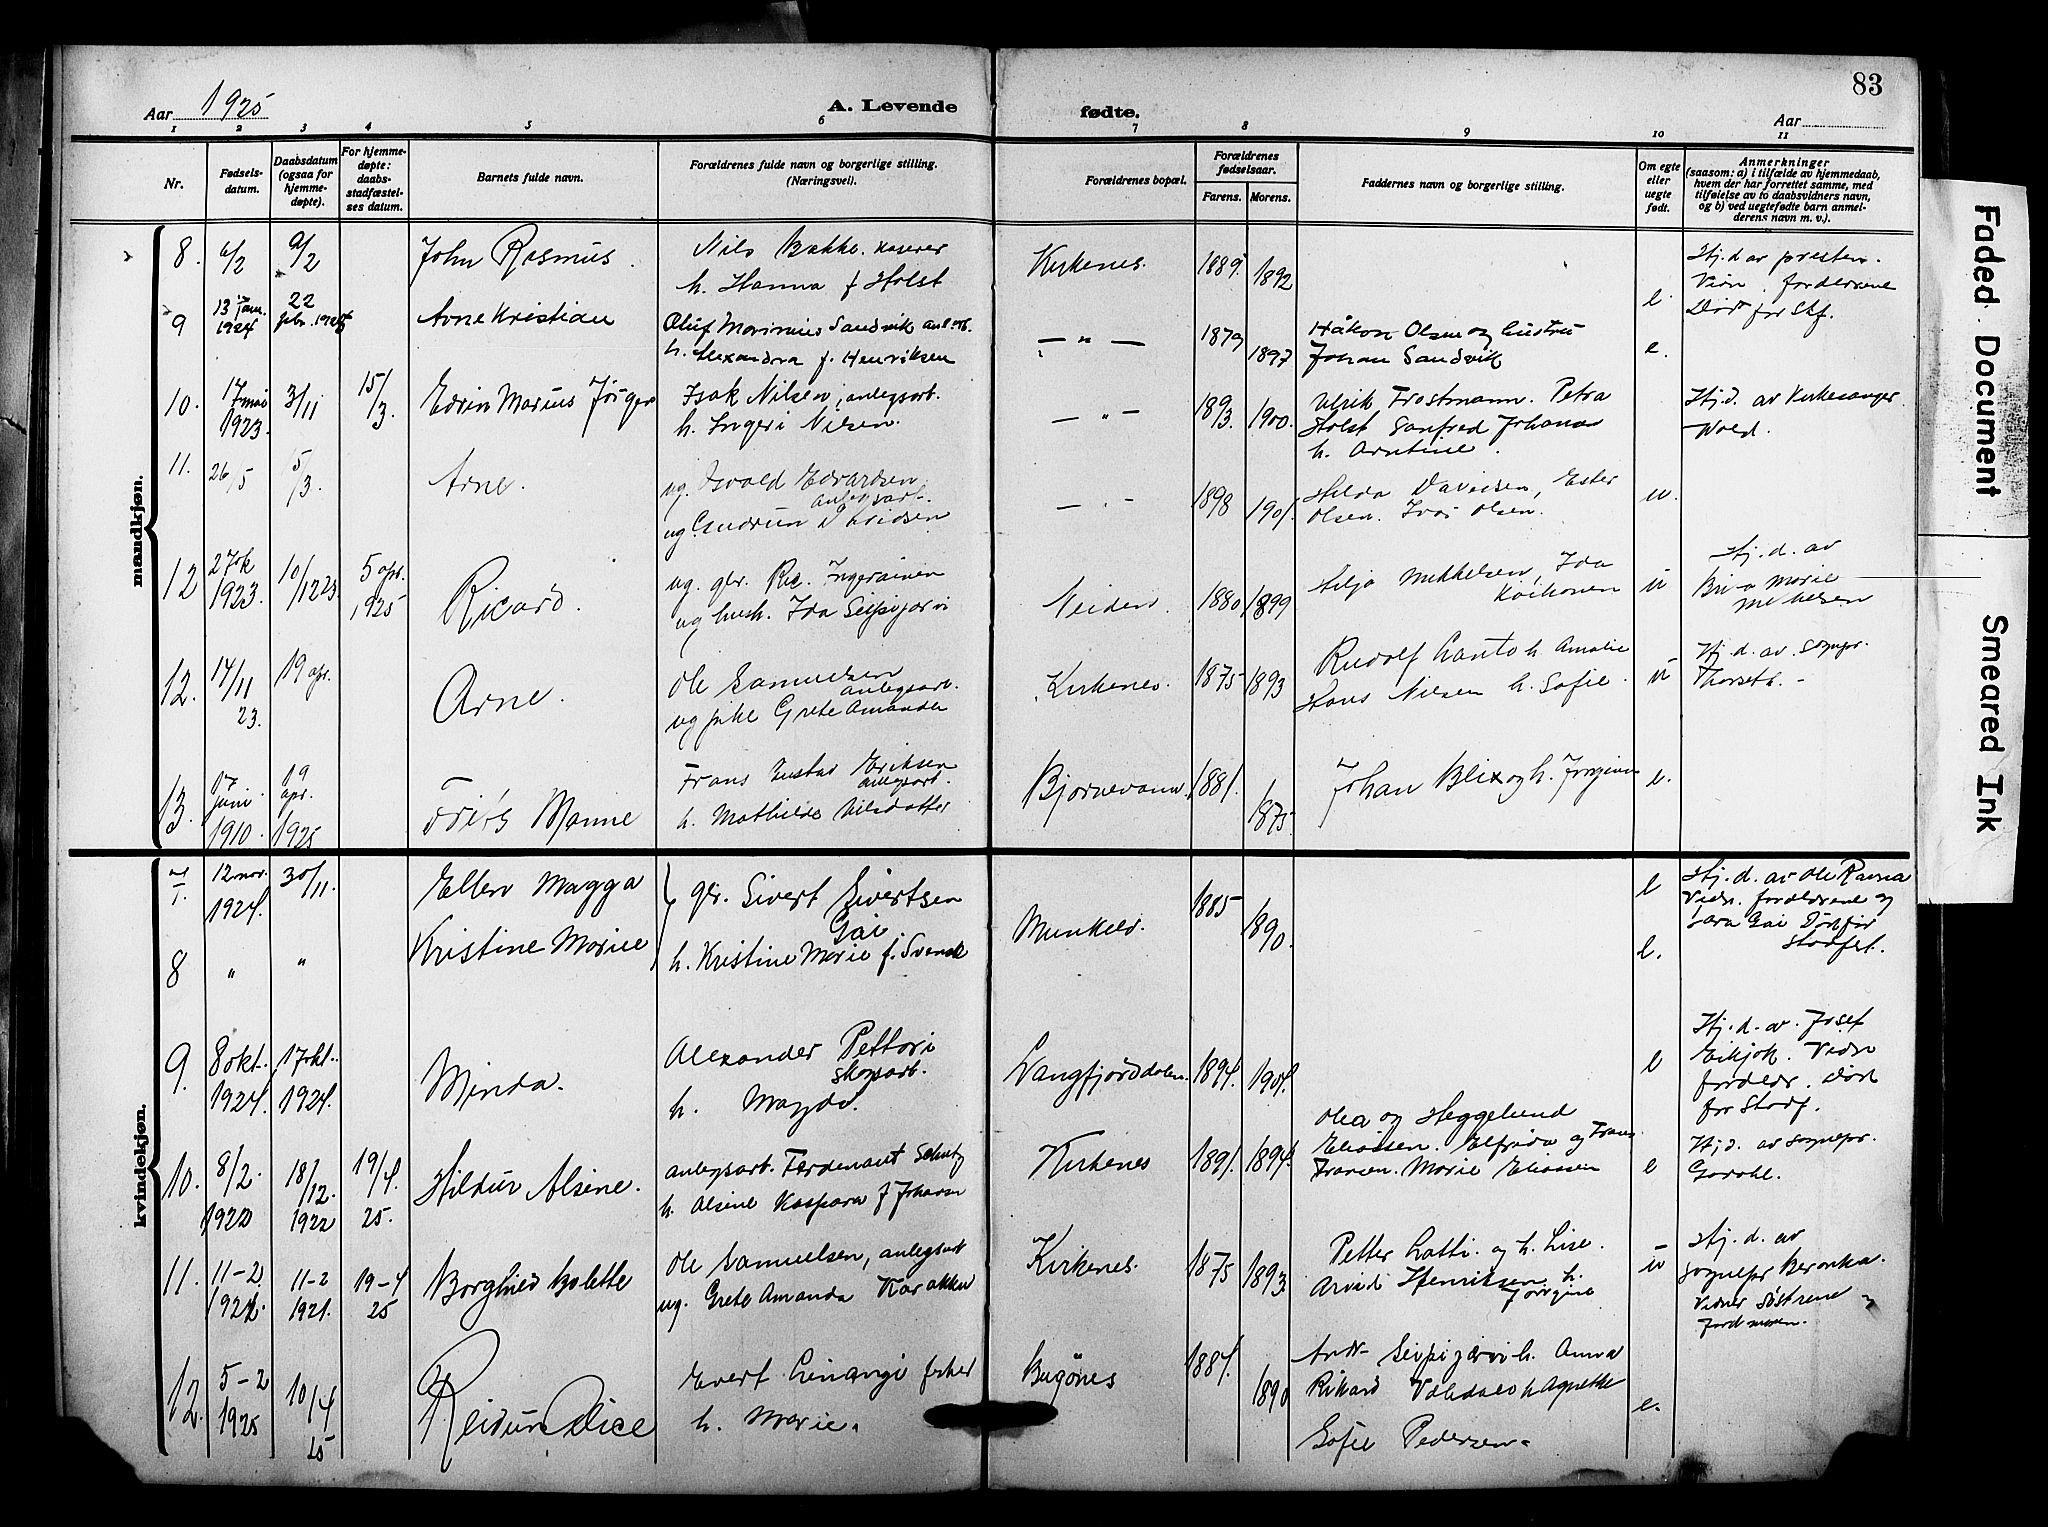 83
Aar 1925
A. Levende
fødte.
Aar
1 2 3 4 5 6 7 8 9 10 11
Nr.
Fødsels-
datum.
Daabsdatum
(ogsaa for
hjemme-
døpte).
For hjemme-
døpte:
daabs-
stadfæstel-
ses datum.
Barnets fulde navn.
Forældrenes fulde navn og borgerlige stilling.
(Næringsvei).
Forældrenes bopæl.
Forældrenes
fødselsaar.
Farens. Morens.
Faddernes navn og borgerlige stilling.
Om egte
eller
uegte
født.
Anmerkninger
(saasom: a) i tilfælde av hjemmedaab,
hvem der har forrettet samme, med
tilføielse av to daabsvidners navn,
og b) ved uegtefødte barn anmel-
derens navn m. v.).
mandkjøn.
8. 6/2 9/2 John Rasmus. Nils Bakke. kaserer
h. Hanna f Holst
Kirkenes. 1889. 1892 e.
Hj. d av presten.
forældrene
Død for Stf.
9 13 jan. 1924 22 febr. 1925 Arne Kristian Oluf Marinius Sandvik anl.arb.
h. Alexandra f. Henriksen
— " — 1879 1897 Håkon Olsen og hustru
Johan Sandvik e.
10. 17 mai 1923. 3/11 15/3. Edvin Marius Jørgen Isak Nilsen, anlegsarb.
h. Inger Nilsen.
— " — 1893. 1900. Ulrik Frostmann. Petra
Holst Sanfred Johansen
h. Arntine.
Hj. d. av Kirkesanger
Wold.
11. 26/5 5/3. Arne. ug. Osvald Edvardsen,
anlegsarb.
ug Gudrun Davidsen
— " — 1898 1901. Hilda Davidsen, Ester
Olsen. Olsen. u.
12 27 ok 1923. 10/12 23 5 apr. 1925 Ricard. ug. gbr. Ric. Ingerainen
ug hush. Ida Seipijærvi
Neiden 1880 1899 Silja Mikkelsen, Ida
Koikonen u
Hj. d. av
Marie
Mikkelsen
12. 14/11 23. 19 apr. Arne. Ole Samuelsen
anlegsarb.
ug pike Grete Amanda
Kirkenes. 1875 1893 Rudolf Lanto h. Amalie
Hans Nilsen h. Sofie. u
Hj. d. av. Sognepr.
Thorseth. -
13. 17 juni 1910. 19 apr. 1925 Manne Frans Gustav Eriksen
anlegsarb.
h. Mathilde Nilsdatter
Bjørnevann. 1881. 1875. Johan Blix og h. Jorgine e.
kvindekjøn.
7 12 nov. 1924. 30/11. Ellen Magga gbr. Sivert Sivertsen
Gai
8 " " Kristine Marie h. Kristine Marie f. Svendsk
Munkelv. 1885 1890. e
e.
Hj. d. av Ole Ravna
Vidn. forældrene og
Sara Gai Død for
Stadfest.
9. 8 okt. 1924. 17 okt. 1924. Minda. Alexander Pettori
skogsarb.
h. Magda.
Langfjorddalen. 1894. 1904. e
Hj. d. av. Josef
Vidn
foreldr. død
for Stadf.
10. 8/2. 1922 18/12 1922 19/4. 25. Hildur Alsine. anlegsarb. Ferdenant Schutz
h. Alsine Kaspara f Johansen
Kirkenes 1891. 1894. Olea og Heggelund
Eliassen. Elfrida og Frans
Fransen. Marie Eliassen e
Hj. d. av sognepr.
Gavohl.
11. 11-2. 1921. 11-2 1921. 19-4 25 Borghild Kolette Ole Samuelsen, anlegsarb
ug. Grete Amanda
Kirkenes. 1875 1893. Petter Latti. og h. Lise.
Arvid Henriksen h.
Jorgine u
Hj. d. av
sognepr Beronka.
Vidner søstrene og
jordmoren.
12. 5-2 1925 10/4 25 Reidun Alice Evert fisker
h. Marie.
Bugønes 1884. 1890 Seipijærvi h. Anna
Rikard h Agnethe
Sofie Pedersen. e.
Faded Document
Smeared Ink